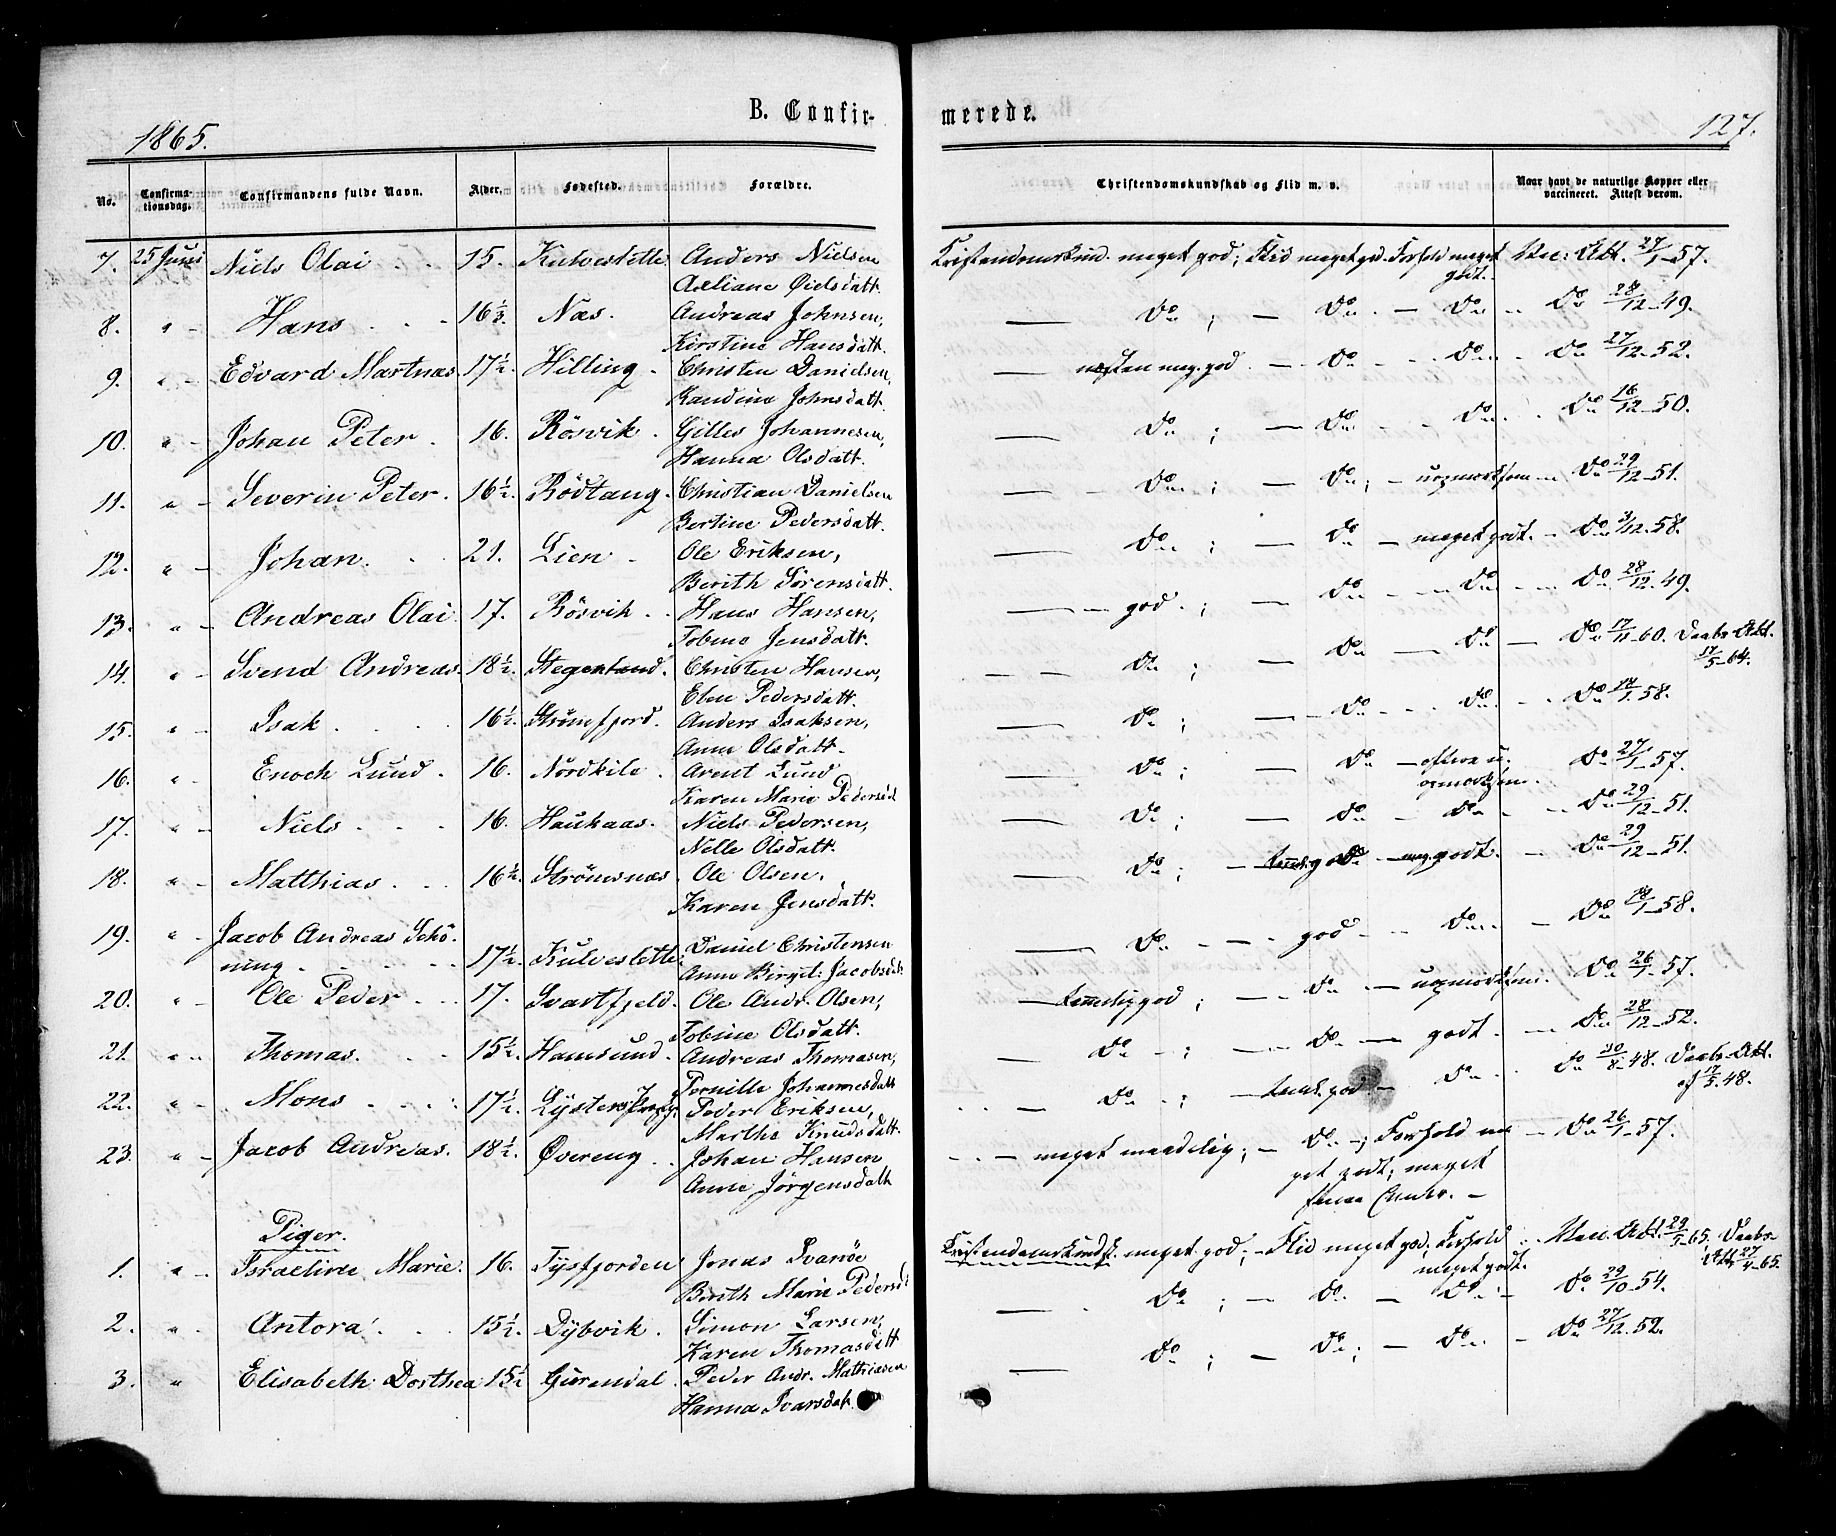 1865.
B. Confir-
merede.
127.
No.
Confirma-
tionsdag.
Confirmandens fulde Navn.
Alder.
Fødested.
Forældre.
Christendomskundskab og Flid m. v.
Naar havt de naturlige Kopper eller
vaccineret. Attest derom.
7. 25 Juni Niels Olai 15. Kulveslette Anders Nielsen
meget god; Flid meget gd. Forhold meget Vac: Att. 27/1-57.
godt.
8. " - Hans 16 1/3. Næs. Andreas Johnsen,
Kirstine Hansdatt.
Do ; - Do. - Do - Do 28/12-49.
9. " - Edvard Martnas 17 1/2. Hilling - Christen Danielsen,
Randine Johnsdatt.
næsten meg. god. - Do - Do - Do 27/12-52.
10. " - Johan Peter. 16. Rösvik. Gilles Johannesen,
Hanna Olsdatt.
Do ; - Do - Do. Do 16/12-50.
11. " - Severin Peter. 16 1/2. Rödtang. Christian Danielsen
Bertine Pedersdatt.
Do ; - Do ; - uopmærksom - Do 29/12-51.
12. " - Johan. 21. Lien - Ole Eriksen,
Berith Sörensdatt.
Do ; - Do - meget godt. - Do 3/12-58.
13. " - Andreas Olai. 17. Rösvik. Hans Hansen,
Tobine Jensdatt.
god. ; - Do - Do - Do 28/12-49.
14. " - Svend Andreas. 18 1/2. Christen Hansen,
Elen Pedersdatt.
Do ; - Do - Do - Do 17/11-60. Daabs-Att.
17/5-64.
15. " Isak 16 1/2. Strömfjord. Anders Isaksen,
Anne Olsdatt.
Do ; - Do - Do. - Do 14/1-58.
16. " Enoch Lund. 16. Nordkile. Arent Lund
Karen Marie Pedersd
Do ; - Do - oftere u- Do 27/1-57.
opmærksom.
17. " - Niels 16. Haukaas. Niels Pedersen,
Nelle Olsdatt.
Do ; - Do - Do - Do 29/12-51.
18. " - Matthias. 16 1/2. Strömsnæs. Ole Olsen,
Karen Jensdatt.
Do ; - - meg. godt. - Do 29/12-51.
19. " - Jacob Andreas Schö-
ning 17 1/2. Kulveslette. Daniel Christensen
Anne Birgit: Jacobsdt.
Do - - god - Do - Do 14/1-58.
20. " - Ole Peder 17. Svartfjeld. Ole Andr. Olsen,
Tobine Olsdatt.
temmelig god ; - Do - uopmærksom. Do 26/1-57.
21. " - Thomas. 15 1/2. Hamsund. Andreas Thomasen,
Pernille Johannesdatt
Do - ; - Do - godt - Do 28/12-52.
22. " - Mons 17 1/2. Peder Eriksen,
Marthe Knudsdatt.
Do ; - temml. god. - Do Do 30/8-48. Daabs-Att.
af 17/5.48.
23. " - Jacob Andreas. 18 1/2. Övereng. Johan Hansen
Anne Jörgensdatt
- meget maadelig; - Do -; Forhold me - Do 26/1-57.
get godt; meget
Piger.
1. " Israeline Marie. 16. Tysfjorden Jonas Ivanöe
Berith Marie Pedersdt
Kristendomskundsk. meget god; - Flid meget god, Forhold - Vac. Att. 29/5-65. Daabs-
meget godt. Att. 27/4-65.
2. " Antora. 15 1/2. Dybvik. Simon Larsen,
Karen Thomasdatt
Do ; - Do - Do - Do 29/10-54.
3. " Elisabeth Dorthea 15 1/2 Gurendal. Peder Andr. Mathiasen
Hanna Ivarsdat.
Do ; - Do ; - Do. - Do 27/12.52.